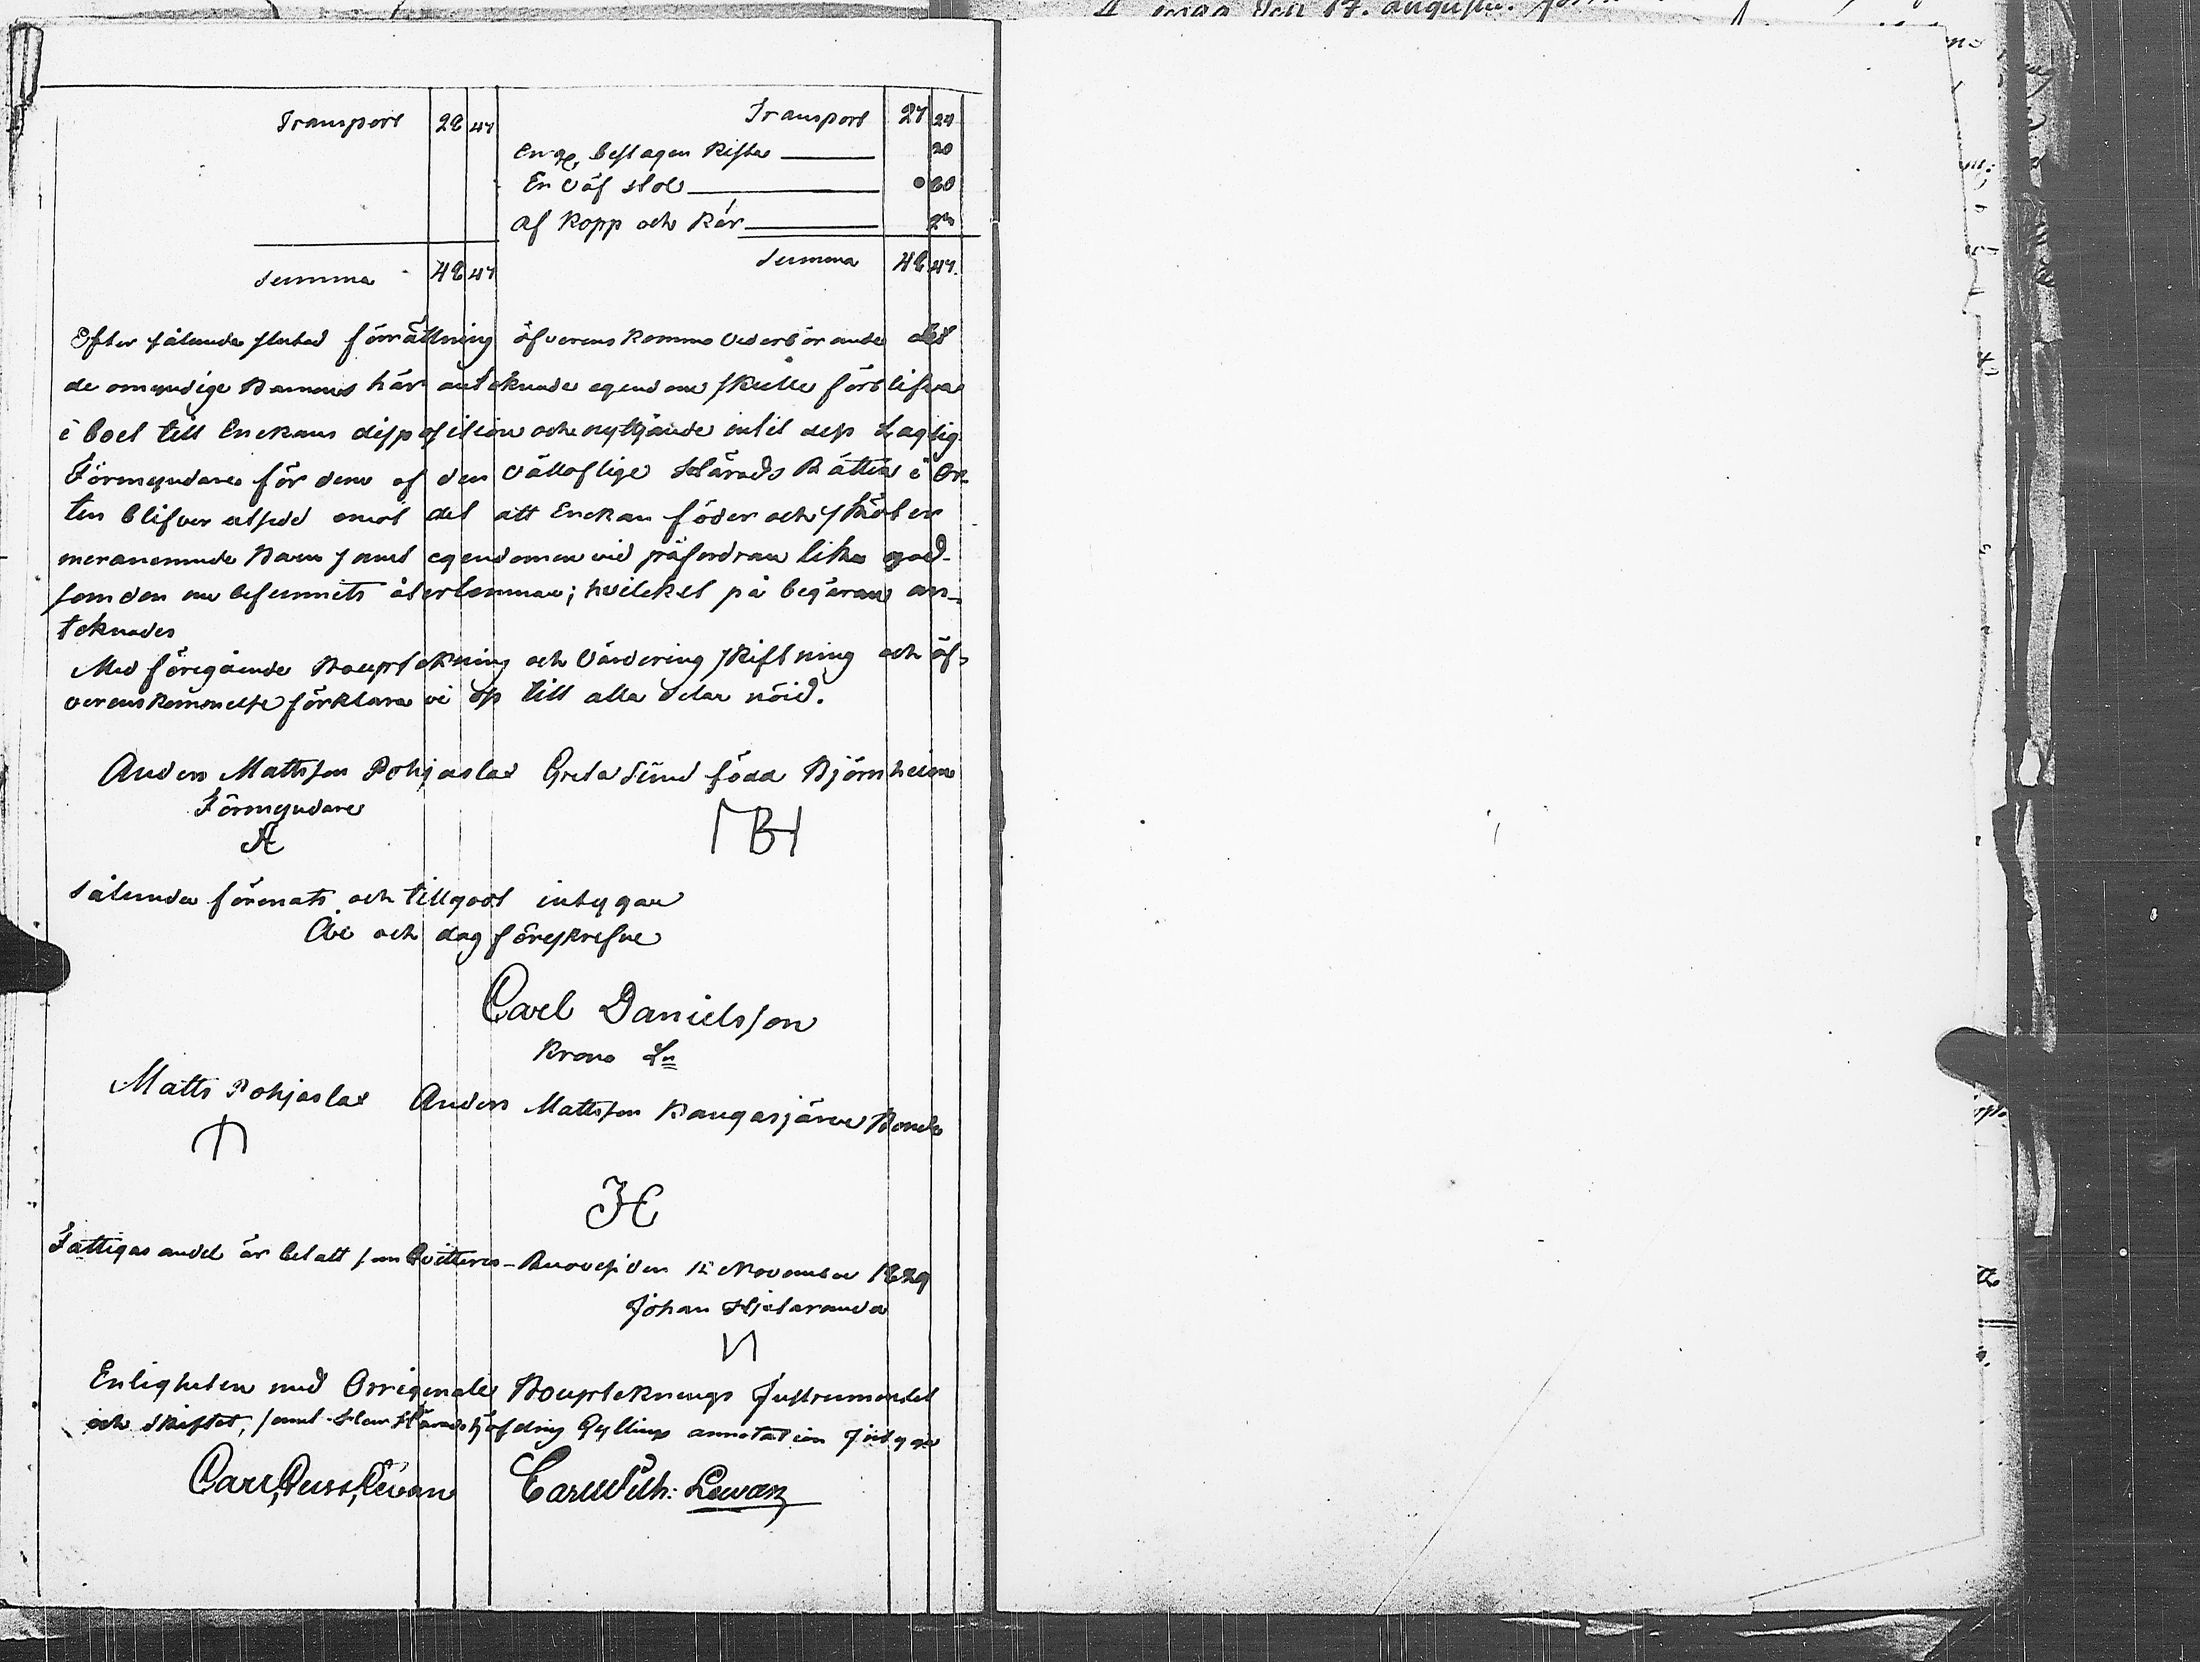 Transport 28 47
Transport 27 27
En beslagen Kista 20
En Väf stol 60
Af Kopp och Kär
Summa 48 47
Summa 48 47
Efter sålunda slutad förrättning öfverenskommo vederbörande att
de omyndige Barnens här antecknade egendom skulle förblifva
i boet till Enckans disposition och nyttjande intil dess Laglig
Förmyndare för dem af den Välloflige Härads Rätten i Or-
ten blifver utsedd emot det att Enckan föder och sköter
meranemnde Barn samt egendomen vid påfordran lika god
som den nu befunnits återlemnar; hvilcket på begäran an-
teknades
Med föregående Bouptekning och Värdering skiftning och öf-
verenskommelse förklara vi oss till alla delar nöid.
Anders Mattsson Pohjaslax Greta Sund född Björnheim
Förmyndare
Sålunda förenats och tillgodt intygar
År och dag föreskrefne
Carl Danielsson
Krono Ln
Matts Pohjaslax Anders Mattsson Kangasjärvi Bonde
Fattigas andel är betalt som qvitteras - Ruovesi den 12 November 1829
Johan Hjelaranda
Enligheten med Orriginale Bouptecknings Instrumentet
och Skiftet, samt Herr Häradshöfding Gyllings annotation Intygar
Carl Gust. Levan Carl Wilh: Lewan